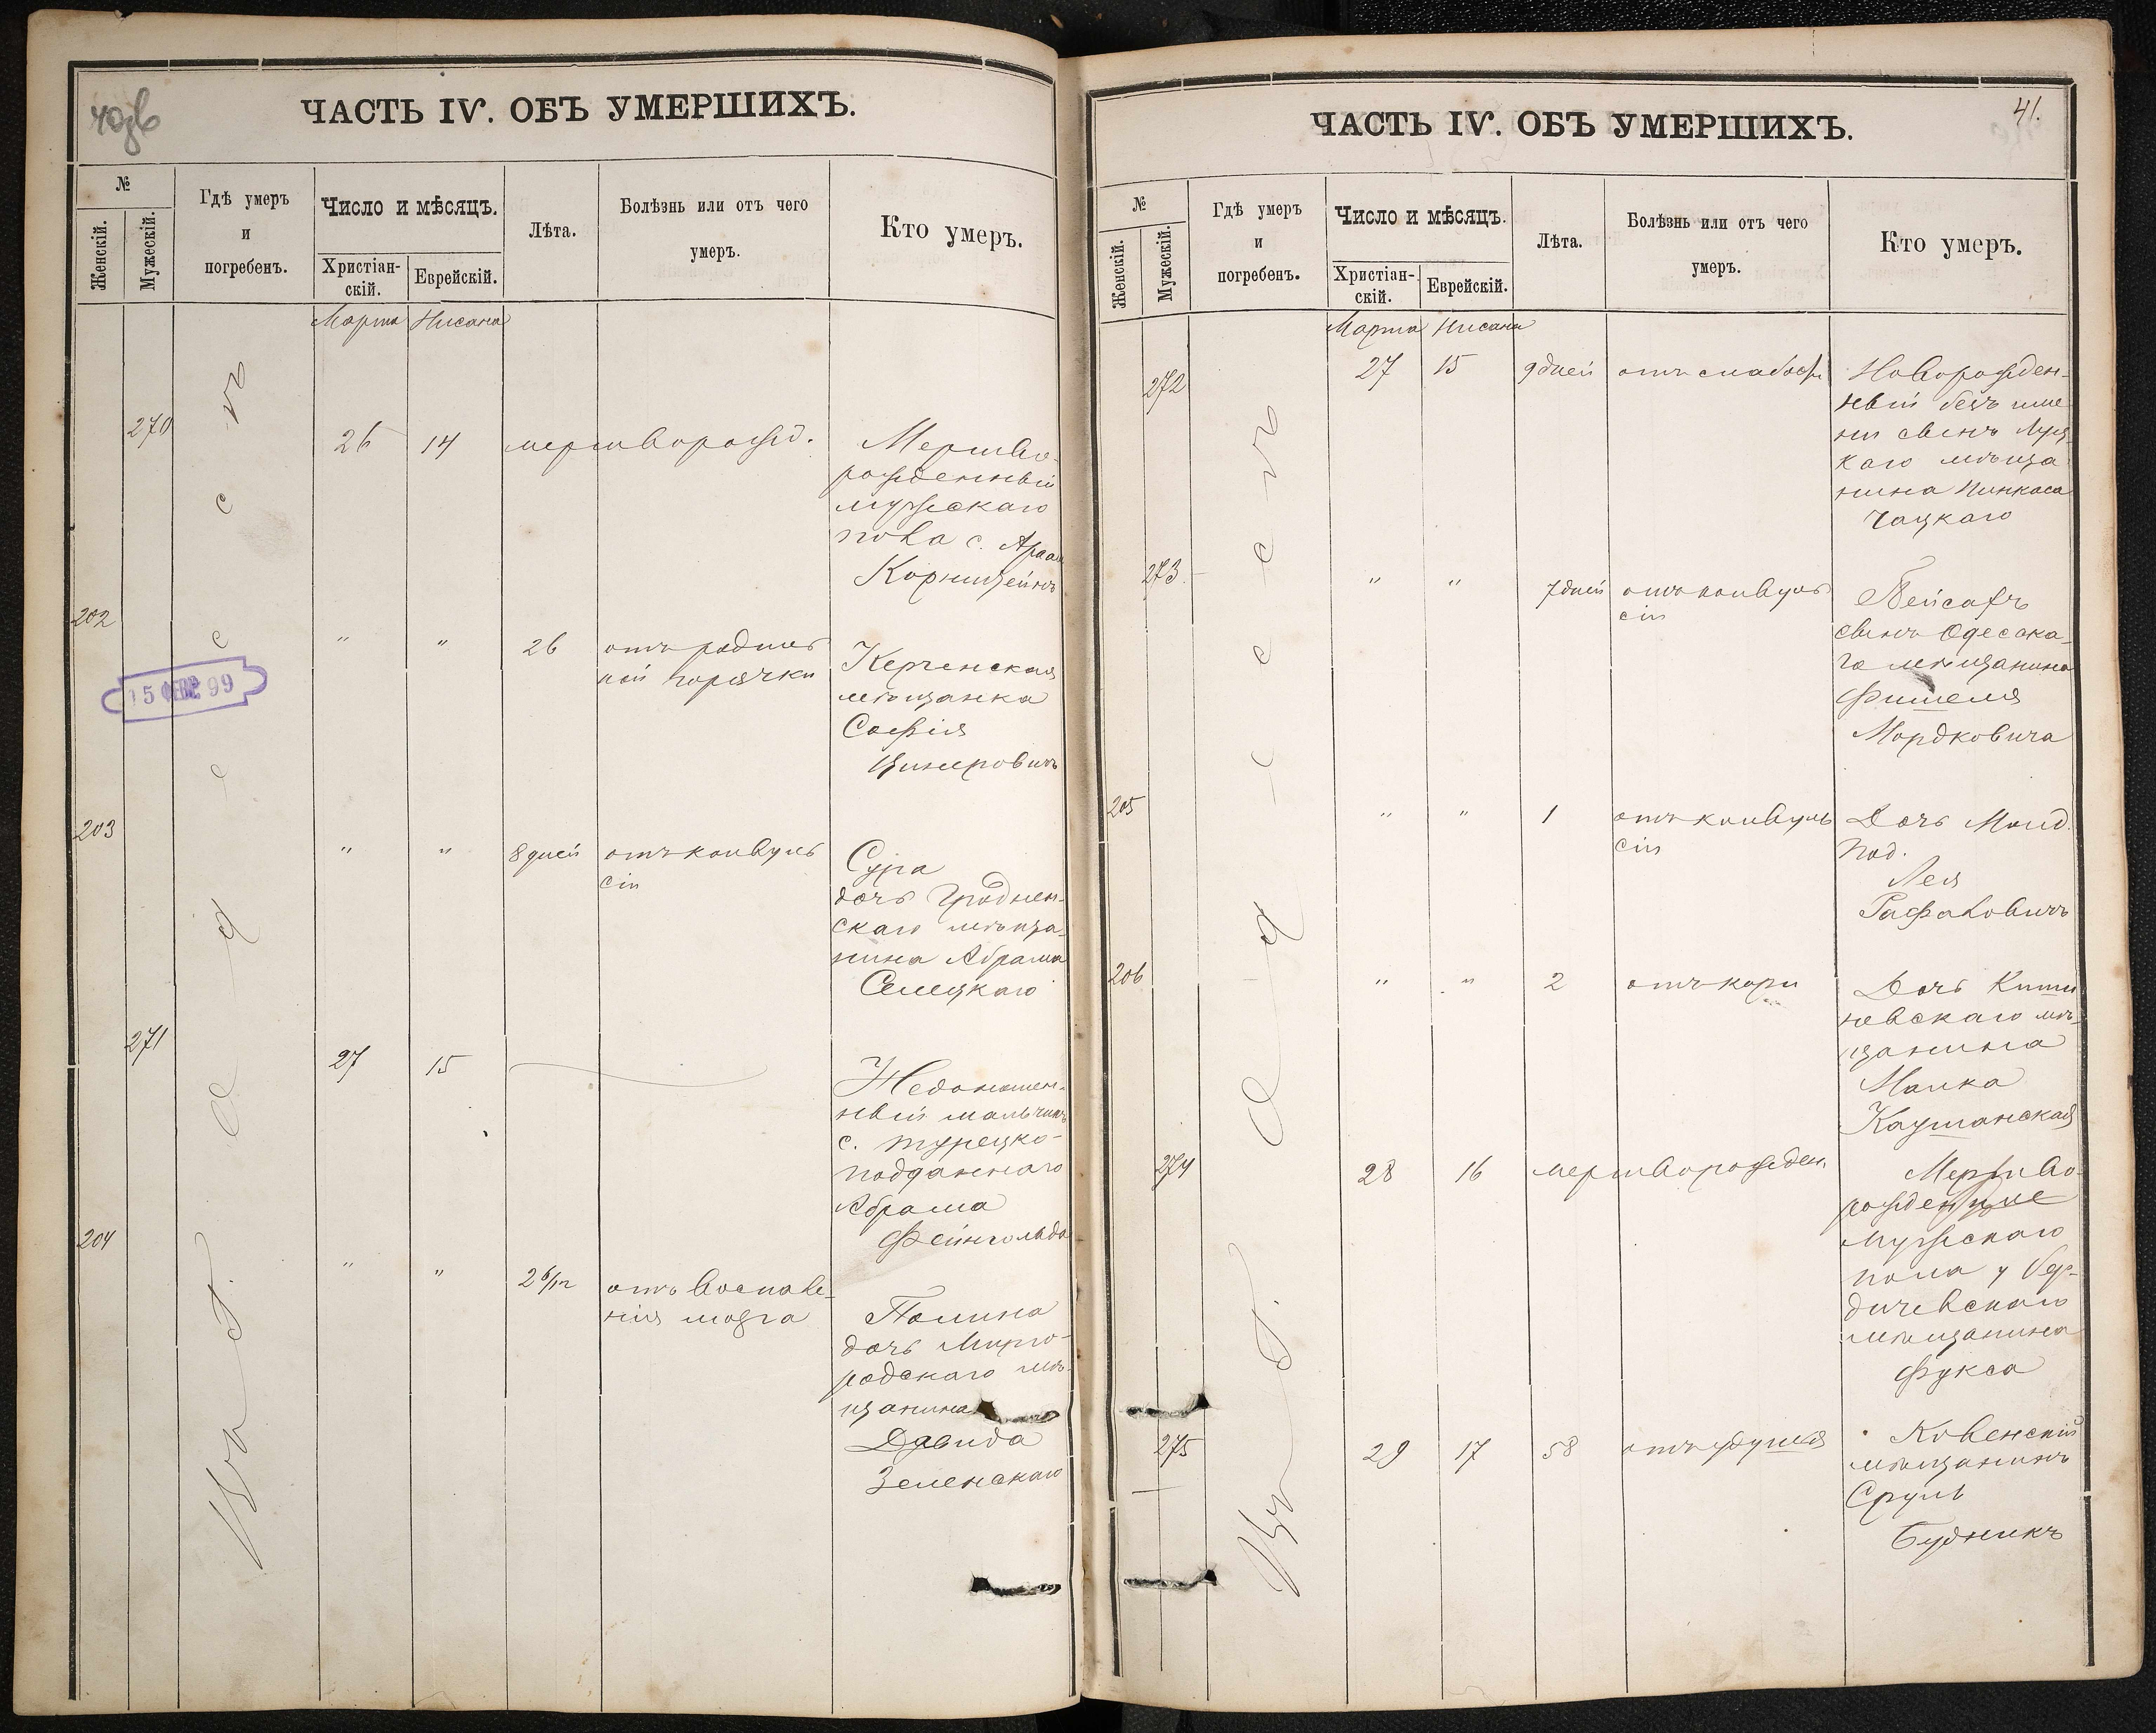 ЧАСТЬ IV. ОБЪ УМЕРШИХЪ.
№
Женскій.
Мужескій.
Гдѣ умеръ
и
погребенъ.
Число и мѣсяцъ.
Христіан-
скій.
Еврейскій.
Лѣта.
Болѣзнь или отъ чего
умеръ.
Кто умеръ.
Марта Нисана
270
26 14 мертворожд.
Мертво-
рожденный
мужескаго
пола с.
202
" " 26 отъ родиль
ной горячки
Керченская
мѣщанка
Софія
15 ФЕВР 99
203
" " 8 дней отъ конвуль
сіи
Сура
дочь Гроднен-
скаго мѣща-
нина Абрама
Селецкаго
271
27 15
Недоношен-
ный мальчикъ
с. турецко-
подданнаго
Абрама
Фейнгольда
204
" " 2 6/12 отъ воспале-
нія мозга
Полина
дочь Мирго-
родскаго мѣ-
щанина
Давида
Зеленскаго
въ г. Одессѣ
ЧАСТЬ IV. ОБЪ УМЕРШИХЪ.
41.
№
Женскій.
Мужескій.
Гдѣ умеръ
и
погребенъ.
Число и мѣсяцъ.
Христіан-
скій.
Еврейскій.
Лѣта.
Болѣзнь или отъ чего
умеръ.
Кто умеръ.
Марта Нисана
272
27 15 9 дней отъ слабости
Новорожден-
ный безъ име
ни сынъ Луц-
каго мѣща
нина Пинкаса
Чацкаго
273
" " 7 дней отъ конвуль
сіи
Пейсахъ
сынъ Одесска-
го мѣщанина
Фишеля
Мордковича
205
" " 1 отъ конвуль
сіи
Дочь
под.
Лея
Рафаловичъ
206
" " 2 отъ кори
Дочь Киши
невскаго мѣ-
щанина
Малка
Каушанская
274
28 16 мертворожден.
Мертво-
мужескаго
пола у Бер-
дичевскаго
мѣщанина
Фукса
275
29 17 58 отъ удушья
Ковенскій
мѣщанинъ
Сруль
Будникъ
въ г. Одессѣ